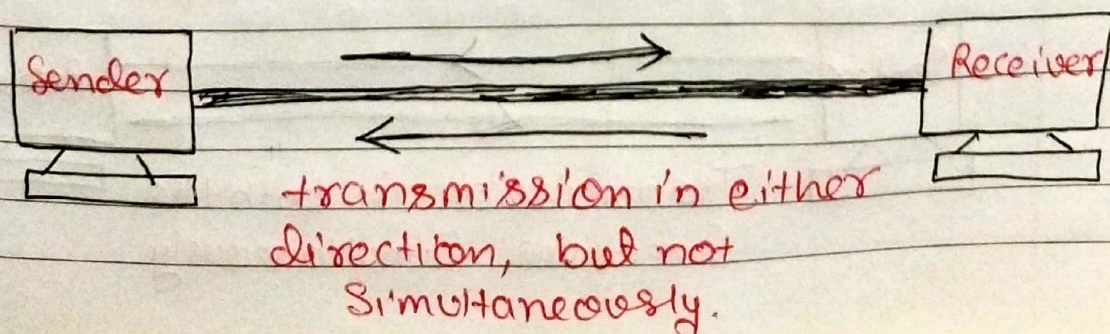 Sender
Receiver
transmission in either
directiton, but not
Simultaneously.